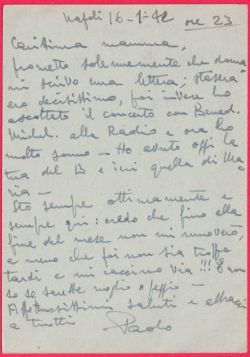 Napoli 16-1-42 ore 23
Carissima mamma,
prometto solennemente che doma
ni scrivo una lettera; stasera
ero decisissimo, poi invece ho
ascoltato il concerto con Bened.
Michel. alla Radio e ora ho
molto sonno - Ho avuto oggi la
tua del 13 e ieri quella di Ma
ria -
Sto sempre ottimamente e
sempre qui: credo che fino alla
fine del mese non mi muoverò
a meno che poi non sia troppo
tardi e mi cacciano via!!! E non
so se sarebbe meglio o peggio -
Affettuosissimi saluti e abbracci
a tutti
Paolo